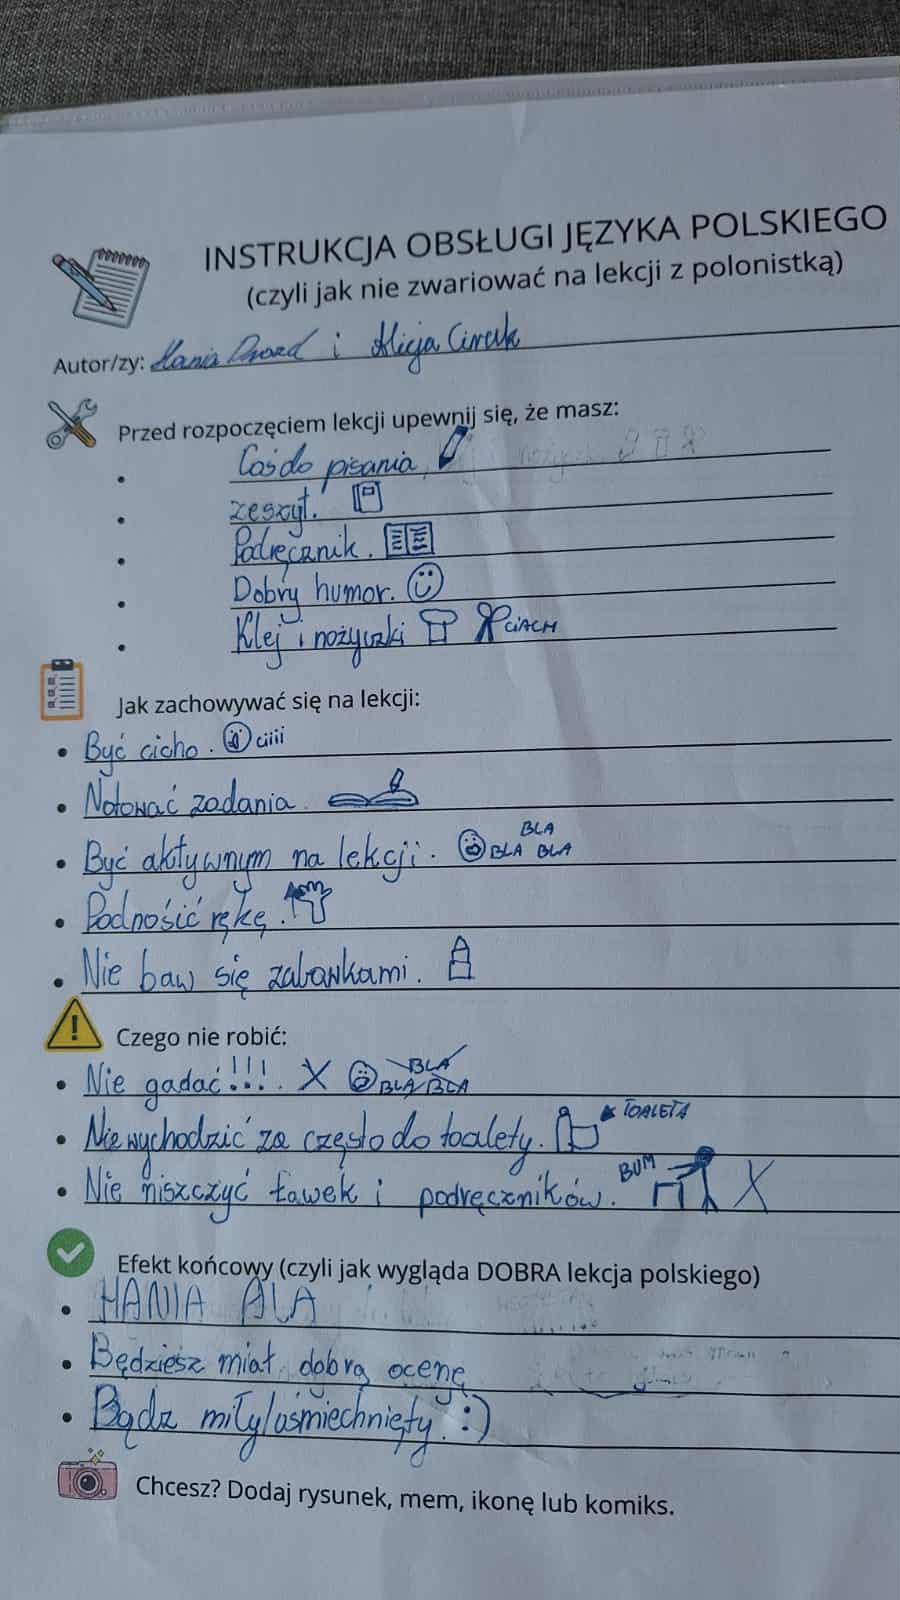 INSTRUKCJA OBSŁUGI JĘZYKA POLSKIEGO
(czyli jak nie zwariować na lekcji z polonistką)
Autor/zy: Hania Drozd i Alicja
Przed rozpoczęciem lekcji upewnij się, że masz:
• Coś do pisania,
• zeszyt.
• Podręcznik.
• Dobry humor.
• Klej i nożyczki CIACH
Jak zachowywać się na lekcji:
• Być cicho. ciiii
• Notować zadania.
BLA
• Być aktywnym na lekcji. BLA BLA
• Podnośić rękę.
• Nie baw się zabawkami.
Czego nie robić:
BLA
• Nie gadać!!!. X BLA BLA
TOALETA
• Nie wychodzić za często do toalety.
BUM
• Nie niszczyć ławek i podręczników. X
Efekt końcowy (czyli jak wygląda DOBRA lekcja polskiego)
• HANIA ALA
• Będziesz miał dobrą ocenę
• Bądz miły/uśmiechnięty. :)
Chcesz? Dodaj rysunek, mem, ikonę lub komiks.